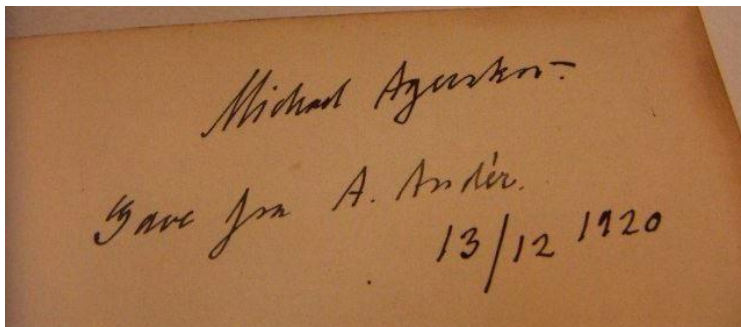 Michael Agerskov.
Gave fra A. Andér.
13/12 1920